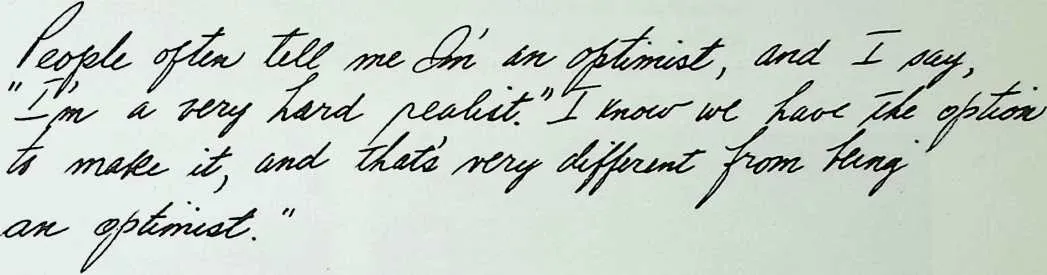 People often tell me I'm an optimist, and I say,
"I'm a very hard realist." I know we have the option
to make it, and that's very different from being
an optimist."